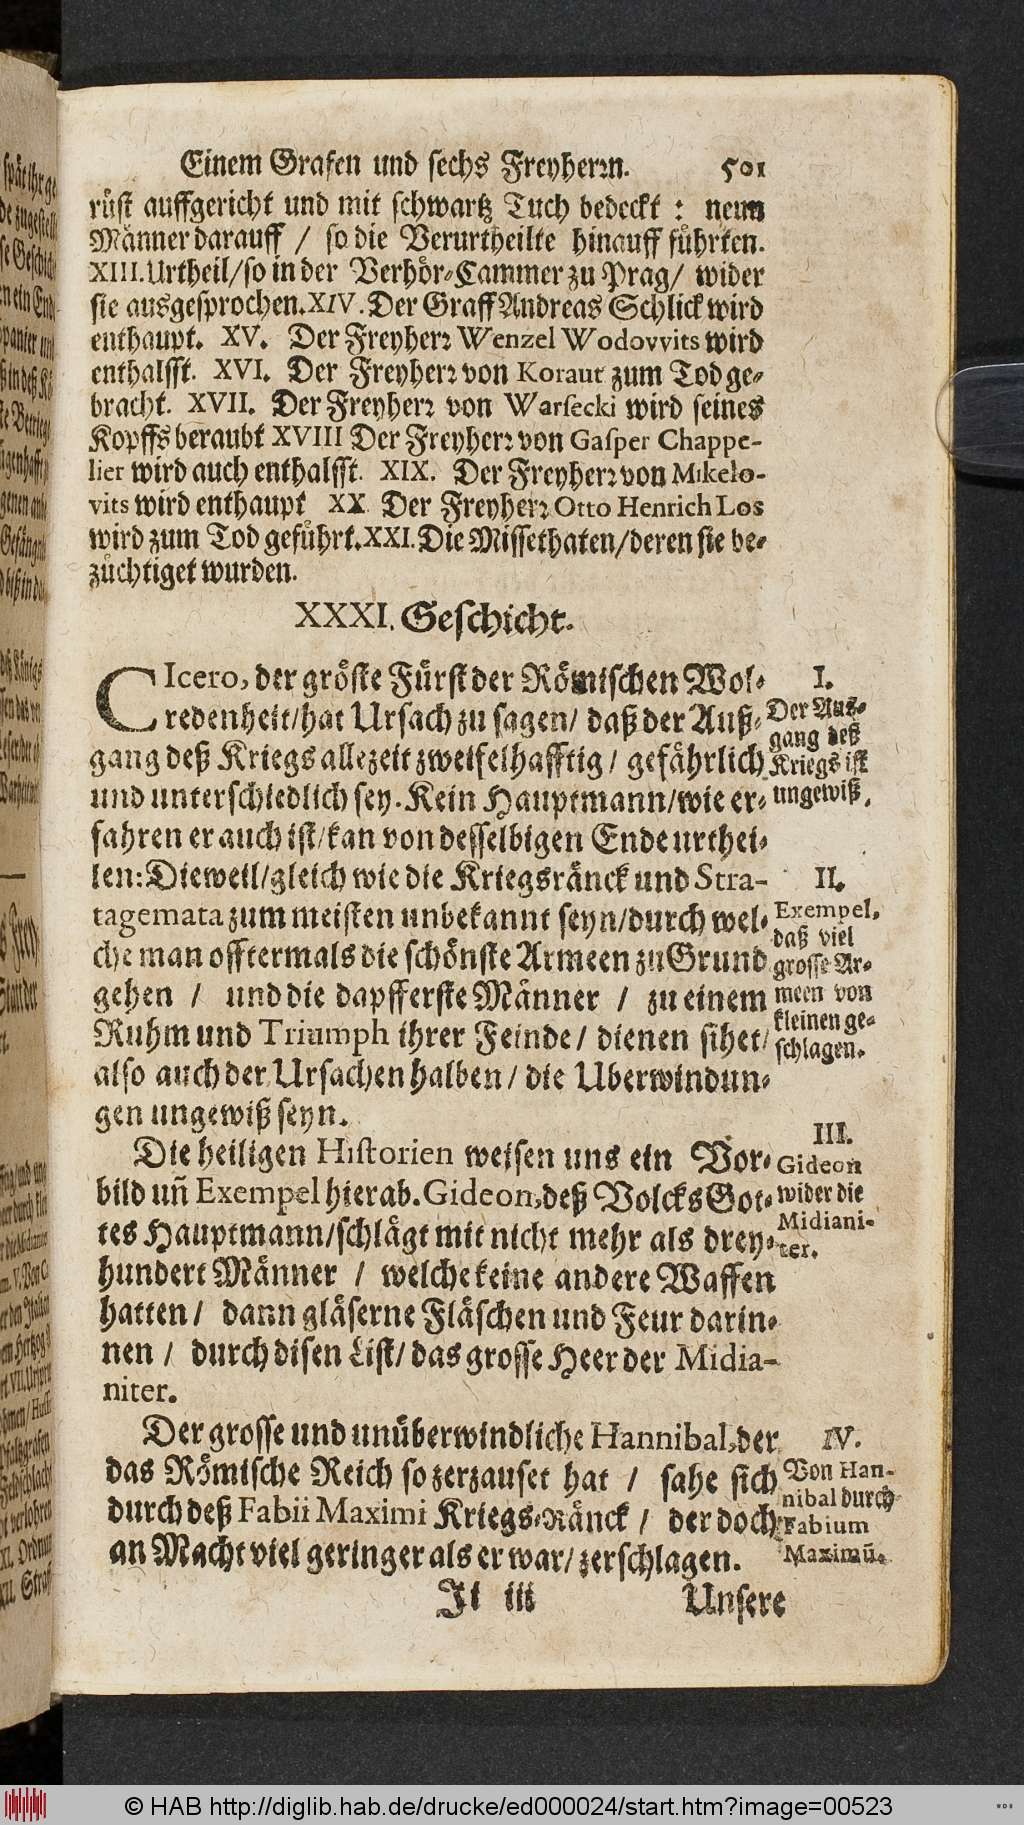 Einem Grafen und sechs Freyherꝛn. 501
rüst auffgericht und mit schwartz Tuch bedeckt : neun
Männer darauff / so die Verurtheilte hinauff führten.
XIII. Urtheil/so in der Verhör-Cammer zu Prag/ wider
sie ausgesprochen. XIV. Der Graff Andreas Schlick wird
enthaupt. XV. Der Freyherꝛ Wenzel Wodovvits wird
enthalsst. XVI. Der Freyherꝛ von Koraut zum Tod ge-
bracht. XVII. Der Freyherꝛ von Warsecki wird seines
Kopffs beraubt XVIII Der Freyherꝛ von Gasper Chappe-
lier wird auch enthalsst. XIX. Der Freyherꝛ von Mikelo-
vits wird enthaupt XX Der Freyherꝛ Otto Henrich Los
wird zum Tod geführt. XXI. Die Missethaten/deren sie be-
züchtiget wurden.
XXXI. Geschicht.
CIcero, der gröste Fürst der Römischen Wol-
redenheit/hat Ursach zu sagen/ daß der Auß-
gang deß Kriegs allezeit zweifelhafftig / gefährlich
und unterschiedlich sey. Kein Hauptmann/wie er-
fahren er auch ist/kan von desselbigen Ende urthei-
len: Dieweil/gleich wie die Kriegsränck und Stra-
tagemata zum meisten unbekannt seyn/durch wel-
che man offtermals die schönste Armeen zu Grund
gehen / und die dapfferste Männer / zu einem
Ruhm und Triumph ihrer Feinde / dienen sihet/
also auch der Ursachen halben / die Uberwindun-
gen ungewiß seyn.
I.
Der Aus-
gang deß
Kriegs ist
ungewiß.
II.
Exempel,
daß viel
grosse Ar-
meen von
kleinen ge-
schlagen.
Die heiligen Historien weisen uns ein Vor-
bild uñ Exempel hierab. Gideon, deß Volcks Got-
tes Hauptmann/schlägt mit nicht mehr als drey-
hundert Männer / welche keine andere Waffen
hatten / dann gläserne Fläschen und Feur darin-
nen / durch disen List/ das grosse Heer der Midia-
niter.
III.
Gideon
wider die
Midiani-
ter.
Der grosse und unüberwindliche Hannibal, der
das Römische Reich so zerzauset hat / sahe sich
durch deß Fabii Maximi Kriegs-Ränck / der doch
an Macht viel geringer als er war/ zerschlagen.
IV.
Von Han-
nibal durch
Fabium
Maximũ.
Ii iii Unsere
© HAB http://diglib.hab.de/drucke/ed000024/start.htm?image=00523